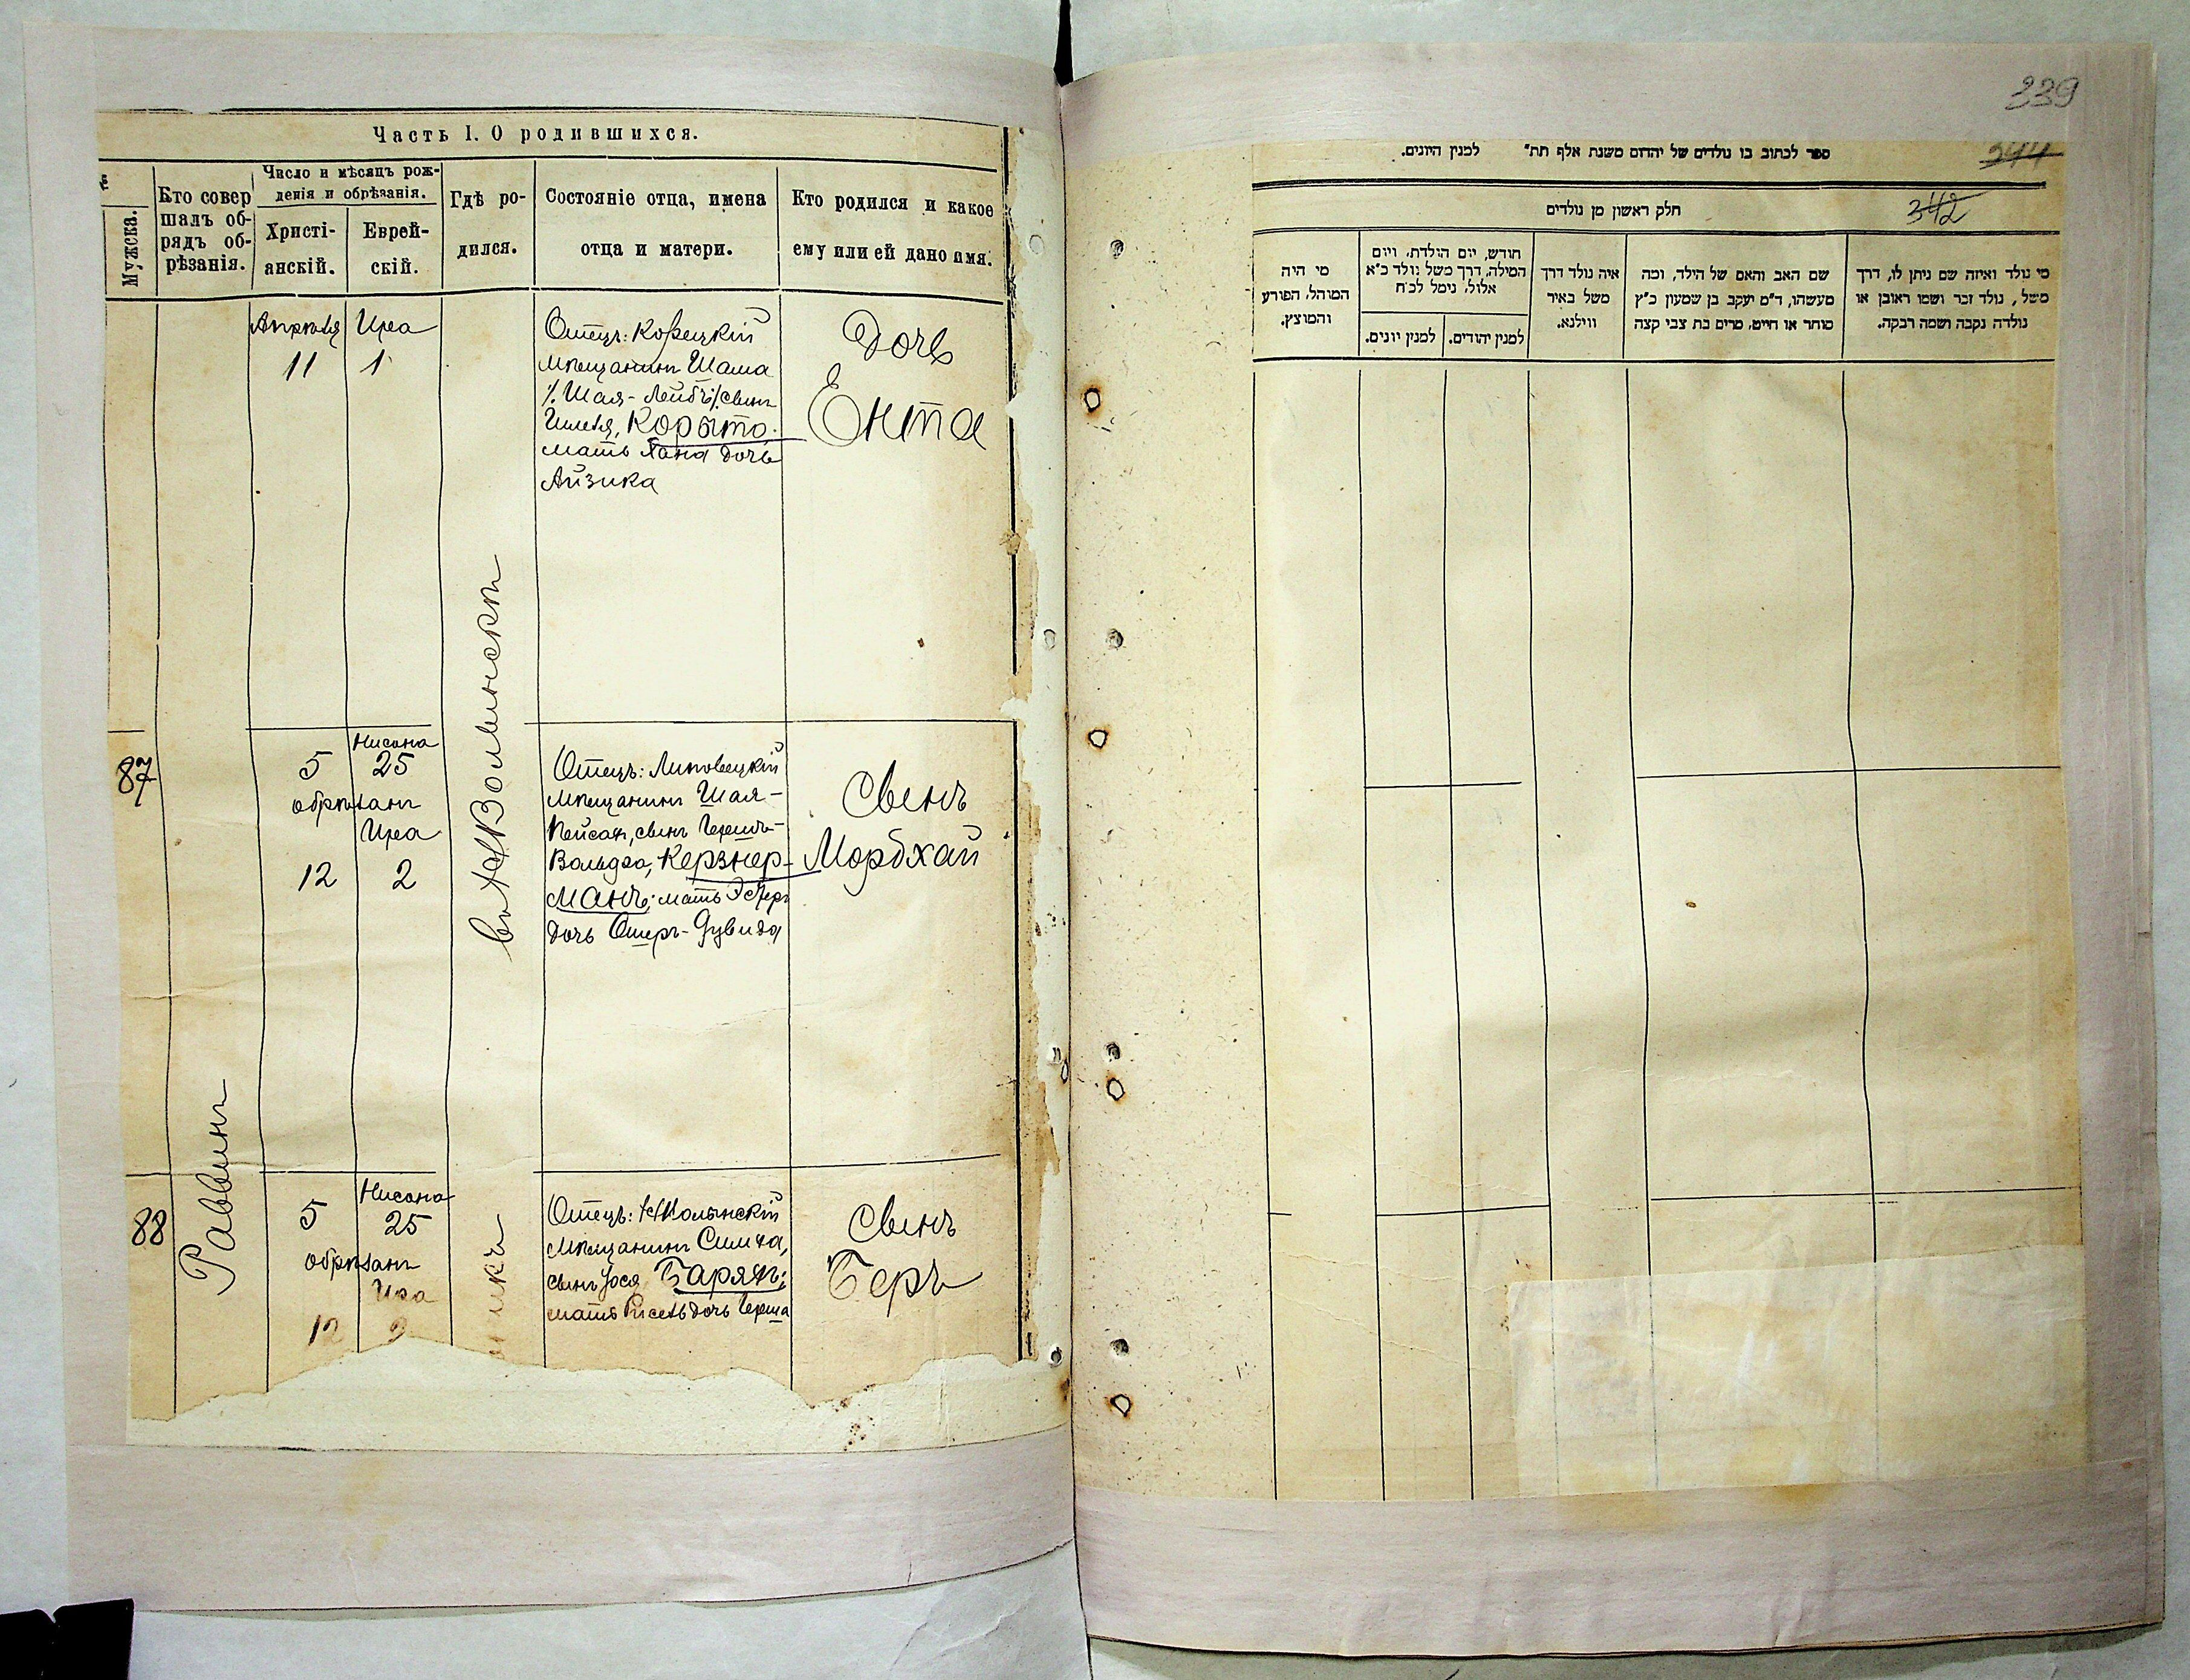 Часть I. О родившихся.
№
Мужска.
Кто совер
шалъ об-
рядъ об-
рѣзанія.
Число и мѣсяцъ рож-
денія и обрѣзанія.
Христі-
анскій.
Еврей-
скій.
Гдѣ ро-
дился.
Состояніе отца, имена
отца и матери.
Кто родился и какое
ему или ей дано имя.
Апрѣля
11
Ира
1
Отецъ: Корецкій
мѣщанинъ Шама
/. Шая-Лейбъ ./ сынъ
Корыто.
мать Хана дочь
Айзика
Дочь
Ента
87
5
Нисона
25
обрѣзанъ
Ира
12
2
Отецъ: Липовецкій
мѣщанинъ Шая-
Пейсах, сынъ Гершъ-
Вольфа, Керзнер-
манъ; мать Эстеръ
дочь Ошеръ-Дувида
Сынъ
Мордхай
88
Раввинъ
5
Нисона
25
обрѣзанъ
Ира
12
2
Отецъ:
мѣщанинъ Симха,
сынъ Іося
мать дочь Герша
Сынъ
Беръ
239
344
ספר לכתוב בו נולדים של יהדום משנת אלף תת״ למנין היונים.
342
חלק ראשון מן נולדים
מי נולד ואיזה שם ניתן לו, דרך
משל, נולד זכר ושמו ראובן או
נולדה נקבה ושמה רבקה.
שם האב והאם של הילד, ומה
מעשהו, ד״מ יעקב בן שמעון כ״ץ
סוחר או חייט, מרים בת צבי קצה
איה נולד דרך
משל באיר
ווילנא.
חודש, יום הולדת, ויום
המילה, דרך משל נולד כ״א
אלול, נימל לכ״ח
למנין יהודים.
למנין יונים.
מי היה
המוהל, הפורע
והמוצץ.